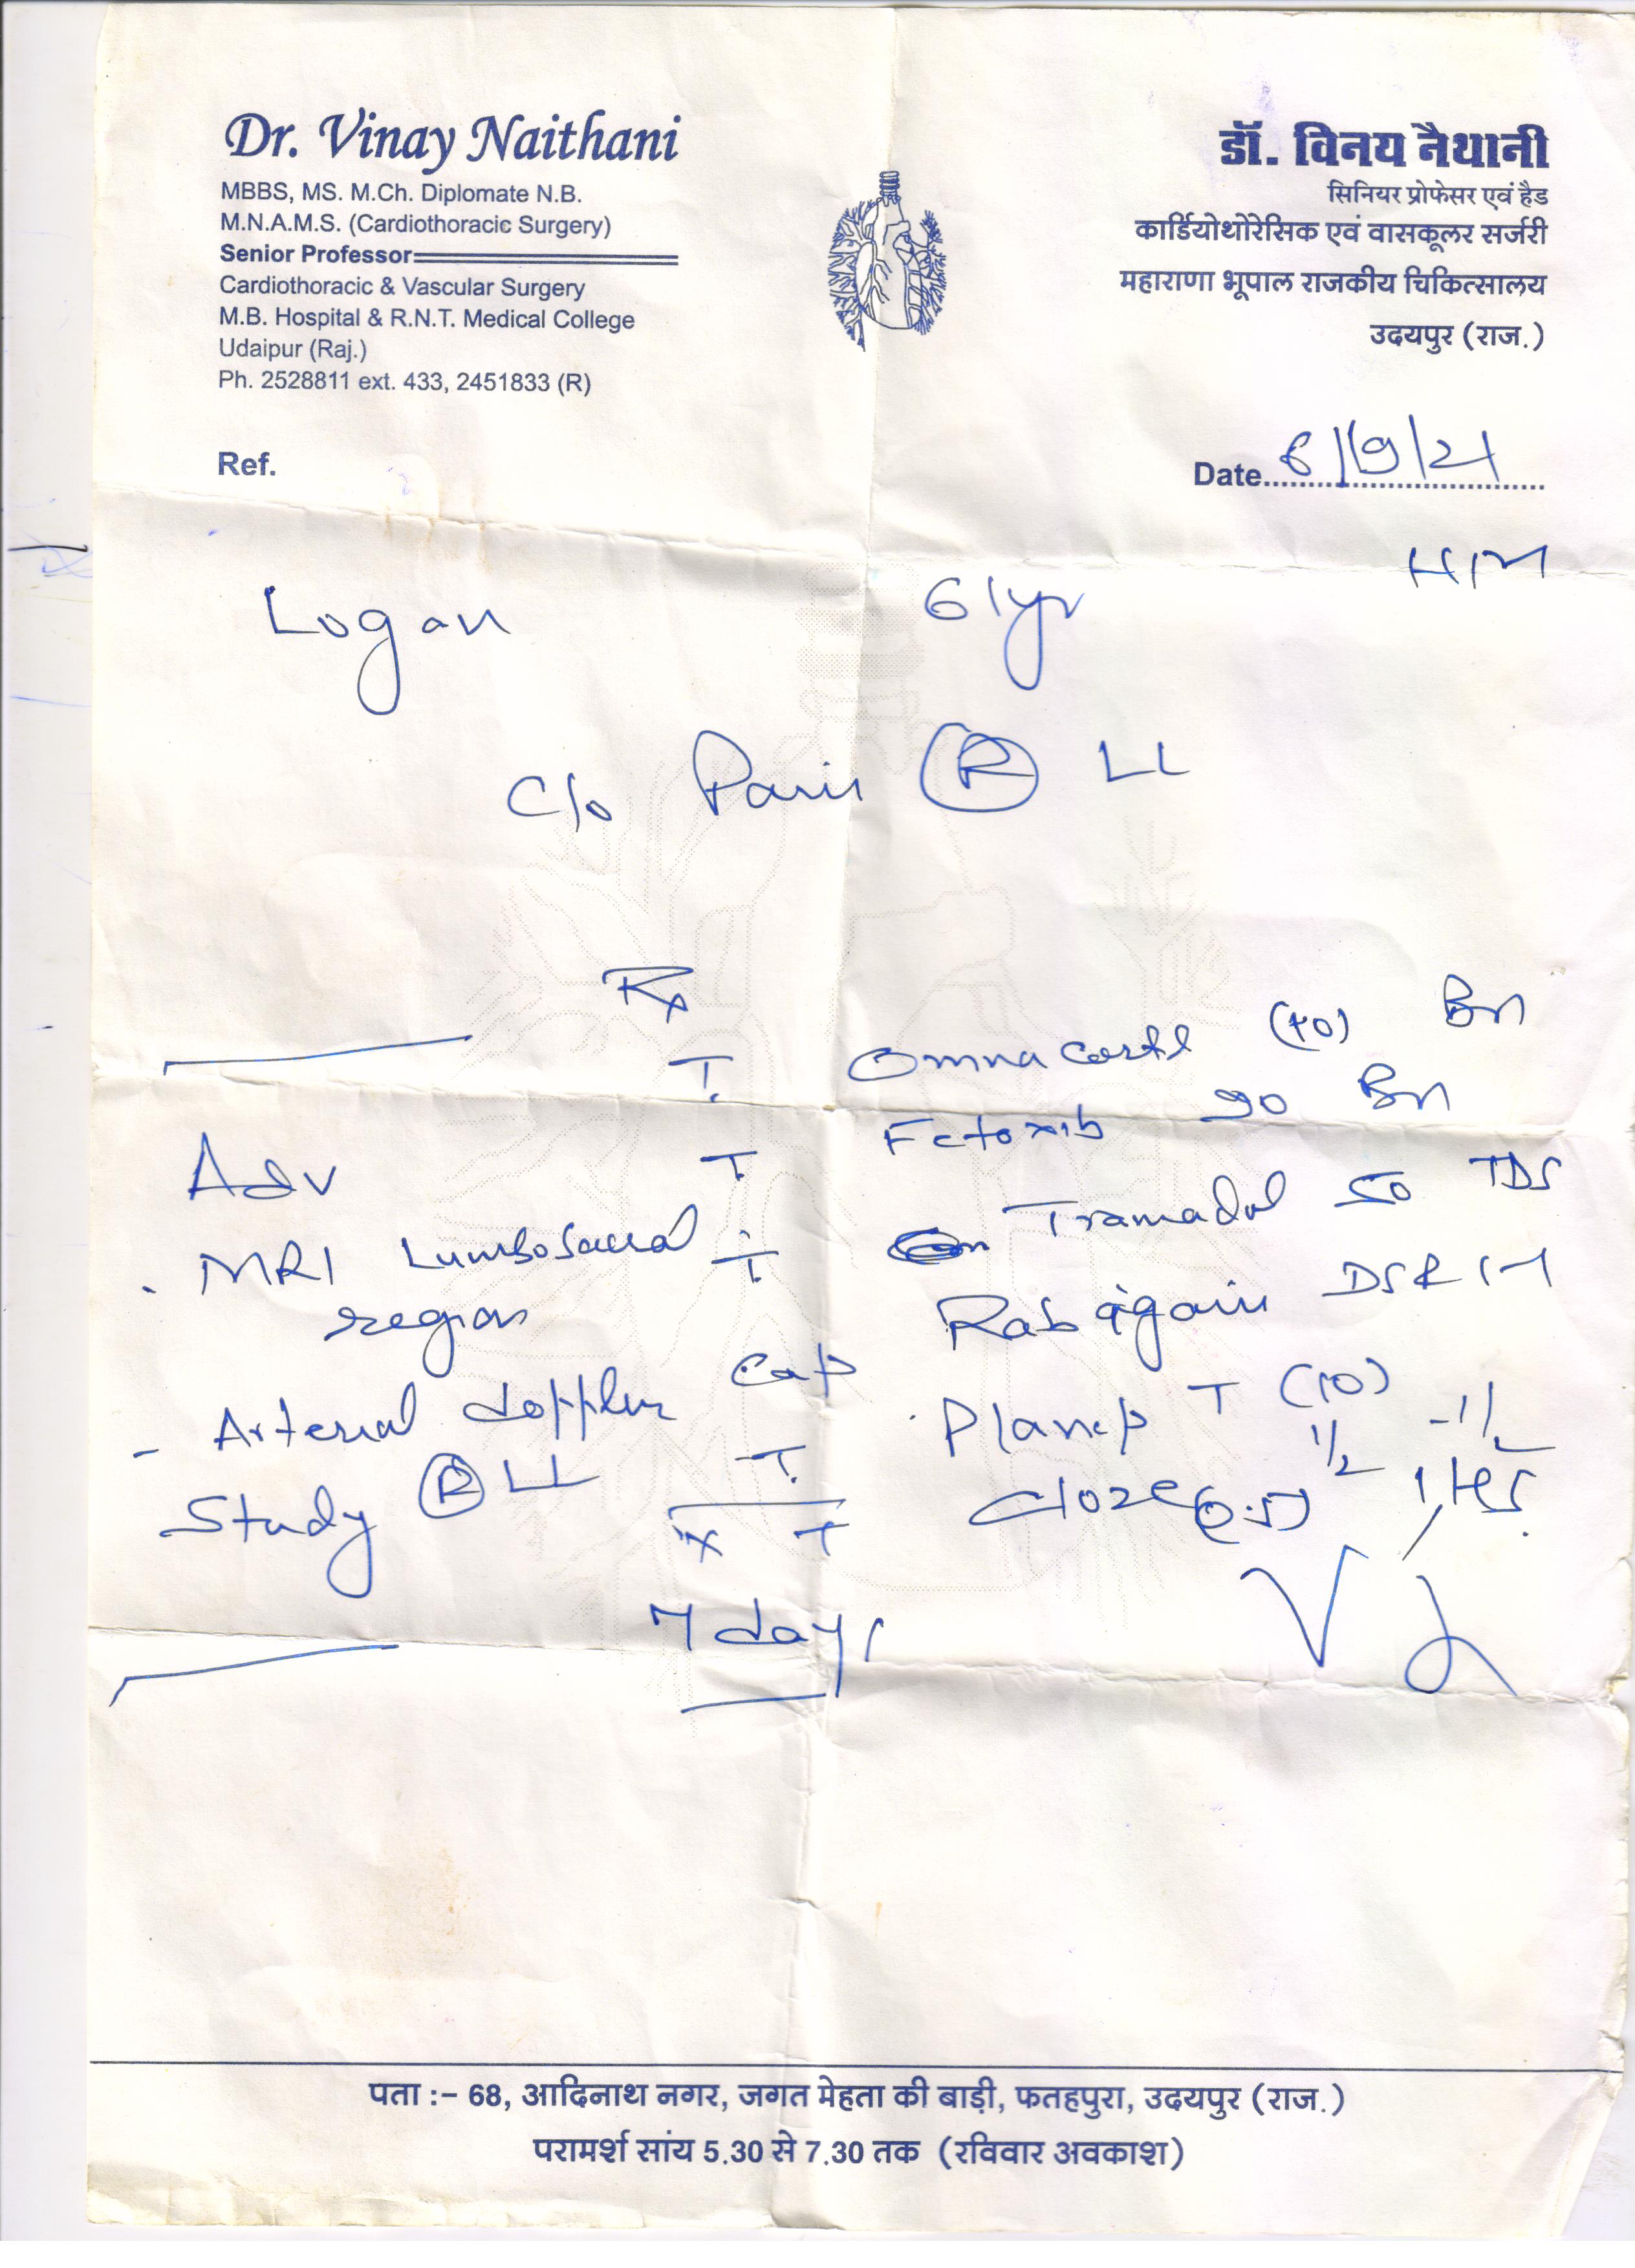 Dr. Vinay Naithani
MBBS, MS. M.Ch. Diplomate N.B.
M.N.A.M.S. (Cardiothoracic Surgery)
Senior Professor
Cardiothoracic & Vascular Surgery
M.B. Hospital & R.N.T. Medical College
Udaipur (Raj.)
Ph. 2528811 ext. 433, 2451833 (R)
डॉ. विनय नैथानी
सिनियर प्रोफेसर एवं हैड
कार्डियोथोरेसिक एवं वासकूलर सर्जरी
महाराणा भूपाल राजकीय चिकित्सालय
उदयपुर (राज.)
Ref.
Date 6/9/21
H/M
Logan 61yr
C/o Pain (R) LL
Rx
T. Omnacortil (10) Bn
T. Etoxib 90 Bn
T. Tramadol 50 TDS
Rabigain DSR 1-1
Cap Planep T (10) 1/2 - 1/2
T. Cloze (0.5) 1 HS
x 7 days
Adv
. MRI Lumbosacral region
- Arterial doppler
Study (R) LL
पता :– 68, आदिनाथ नगर, जगत मेहता की बाड़ी, फतहपुरा, उदयपुर (राज.)
परामर्श सांय 5.30 से 7.30 तक (रविवार अवकाश)